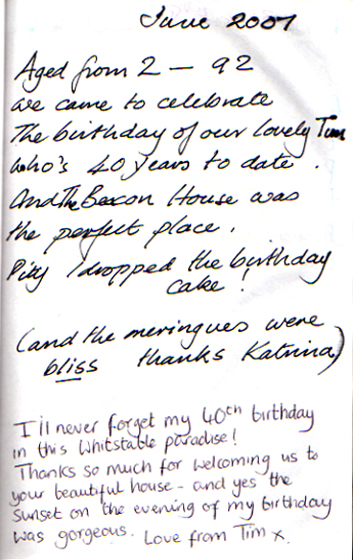 June 2007
Aged from 2 - 92
we came to celebrate
The birthday of our lovely Tim
who's 40 years to date.
And The Beacon House was
the perfect place.
Pity I dropped the birthday
cake!
(and the meringues were
bliss thanks Katrina)
I'll never forget my 40th birthday
in this Whitstable paradise!
Thanks so much for welcoming us to
your beautiful house - and yes the
sunset on the evening of my birthday
was gorgeous. Love from Tim x.